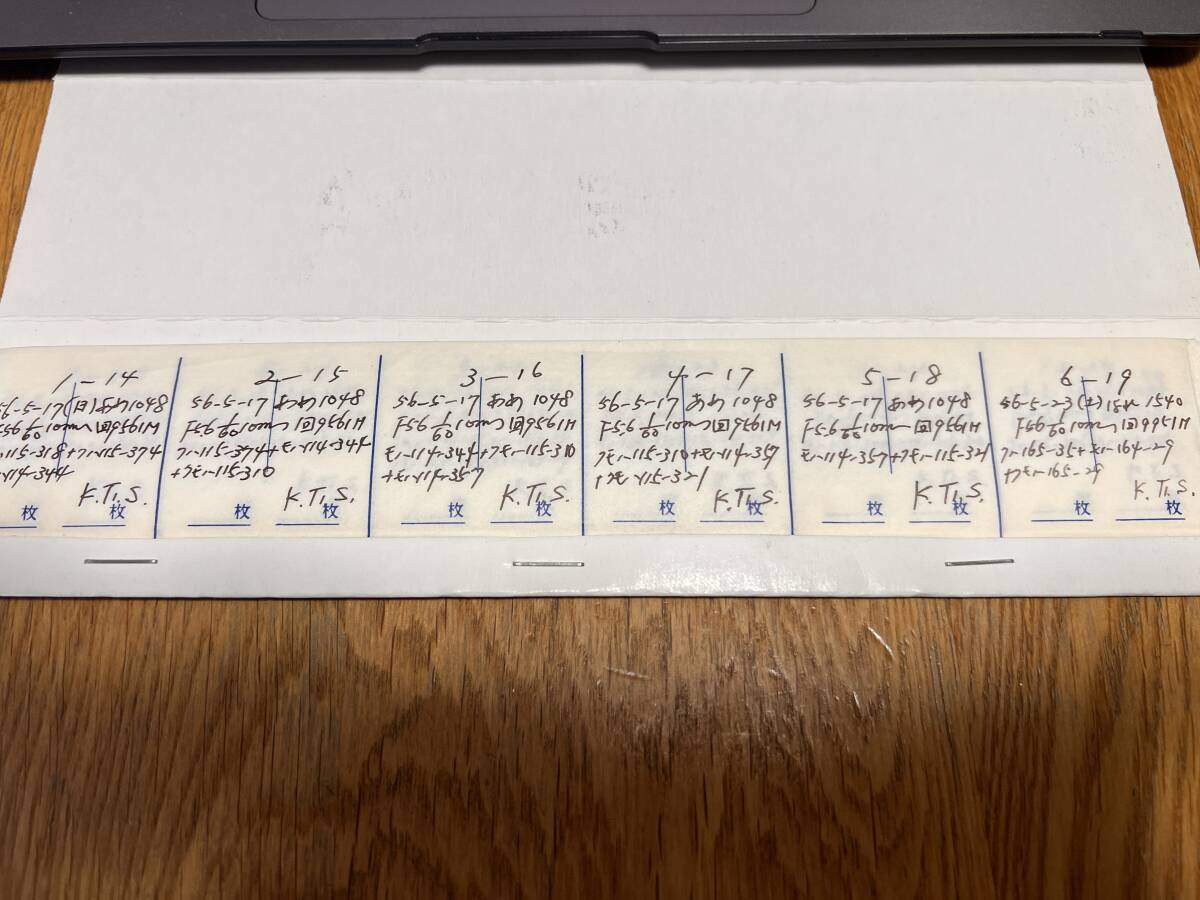 1-14
56-5-17(日)あわ1048
F5.6 1/60 100mm 回9561M
115-318+クハ115-374
114-344
K.T.S.
枚 枚
2-15
56-5-17 あわ1048
F5.6 1/60 100mm 回9561M
クハ115-374+モハ114-344
+クモハ115-310
K.T.S.
枚 枚
3-16
56-5-17 あわ1048
F5.6 1/60 100mm 回9561M
モハ114-344+クモハ115-310
+モハ114-357
K.T.S.
枚 枚
4-17
56-5-17 あわ1048
F5.6 1/60 100mm 回9561M
クモハ115-310+モハ114-357
+クモハ115-321
K.T.S.
枚 枚
5-18
56-5-17 あわ1048
F5.6 1/60 100mm 回9561M
モハ114-357+クモハ115-321
K.T.S.
枚 枚
6-19
56-5-23(土) 1540
F5.6 1/60 100mm 回9951M
クハ165-35+モハ164-29
+クモハ165-29
K.T.S.
枚 枚